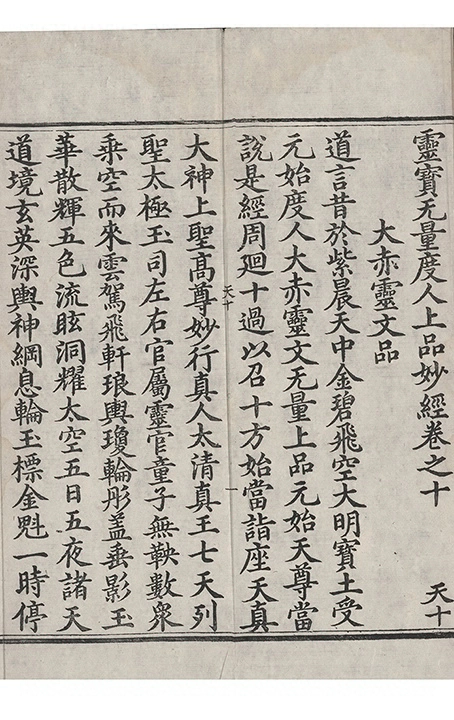 靈寶无量度人上品妙經卷之十 天十
大赤靈文品
道言昔於紫晨天中金碧飛空大明寶土受
元始度人大赤靈文无量上品元始天尊當
說是經周廻十過以召十方始當詣座天真
天十 一
大神上聖髙尊妙行真人太清真王七天列
聖太極玉司左右官屬靈官童子無鞅數衆
乘空而來雲駕飛軒琅輿瓊輪彤盖垂影玉
華散輝五色流眩洞耀太空五日五夜諸天
道境玄英深輿神綱息輪玉標金魁一時停